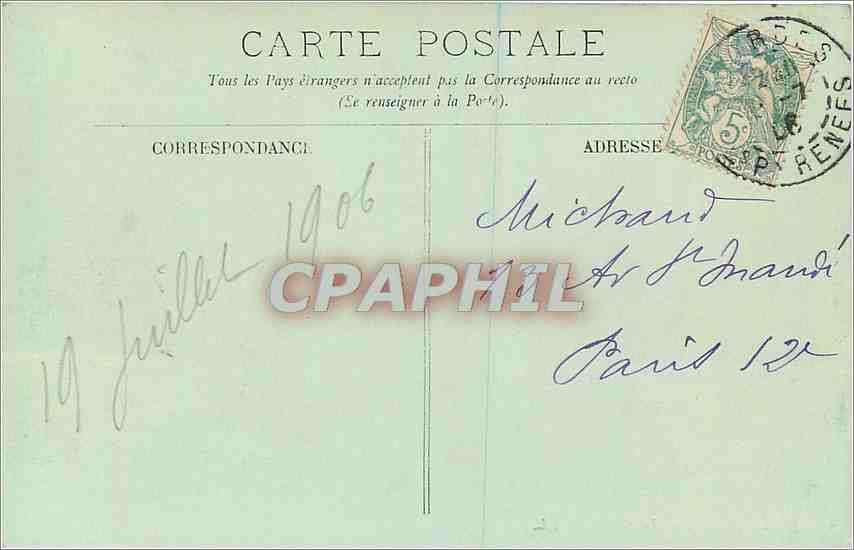 CARTE POSTALE
Tous les Pays étrangers n'acceptent pas la Correspondance au recto
(Se renseigner à la Poste).
CORRESPONDANCE
ADRESSE
5c
POSTES
PYRENEES
19 Juillet 1906
Michaud
13 Av St Mandé
Paris 12e
CPAPHIL